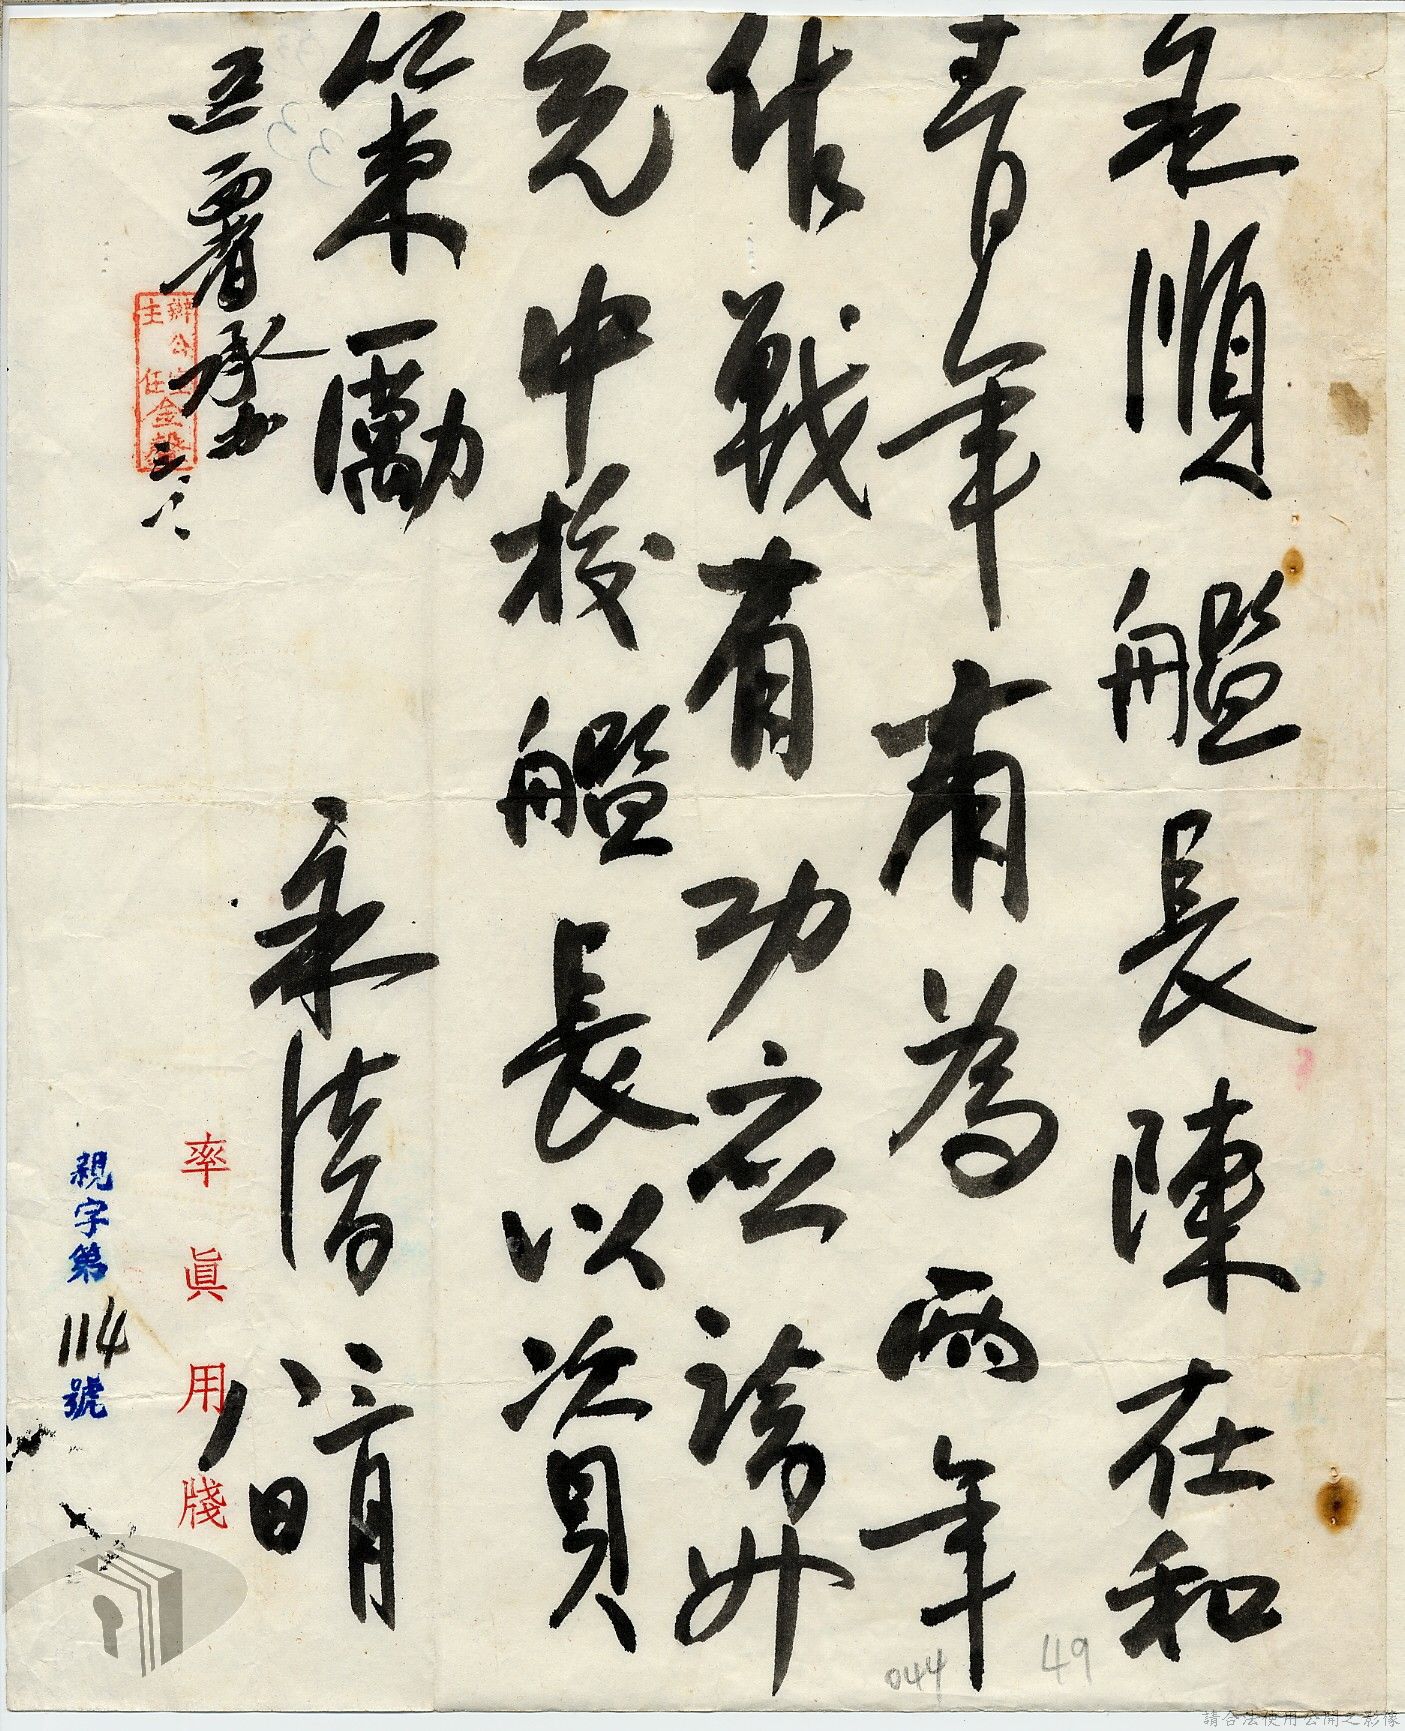 永順艦長陳在和
青年有為兩年
作戰有功應請升
充中校艦長以資
策勵
永清 三月
八日
署承办
辦公室
主任金聲
率眞用牋
親字第114號
044
49
請合法使用公開之影像